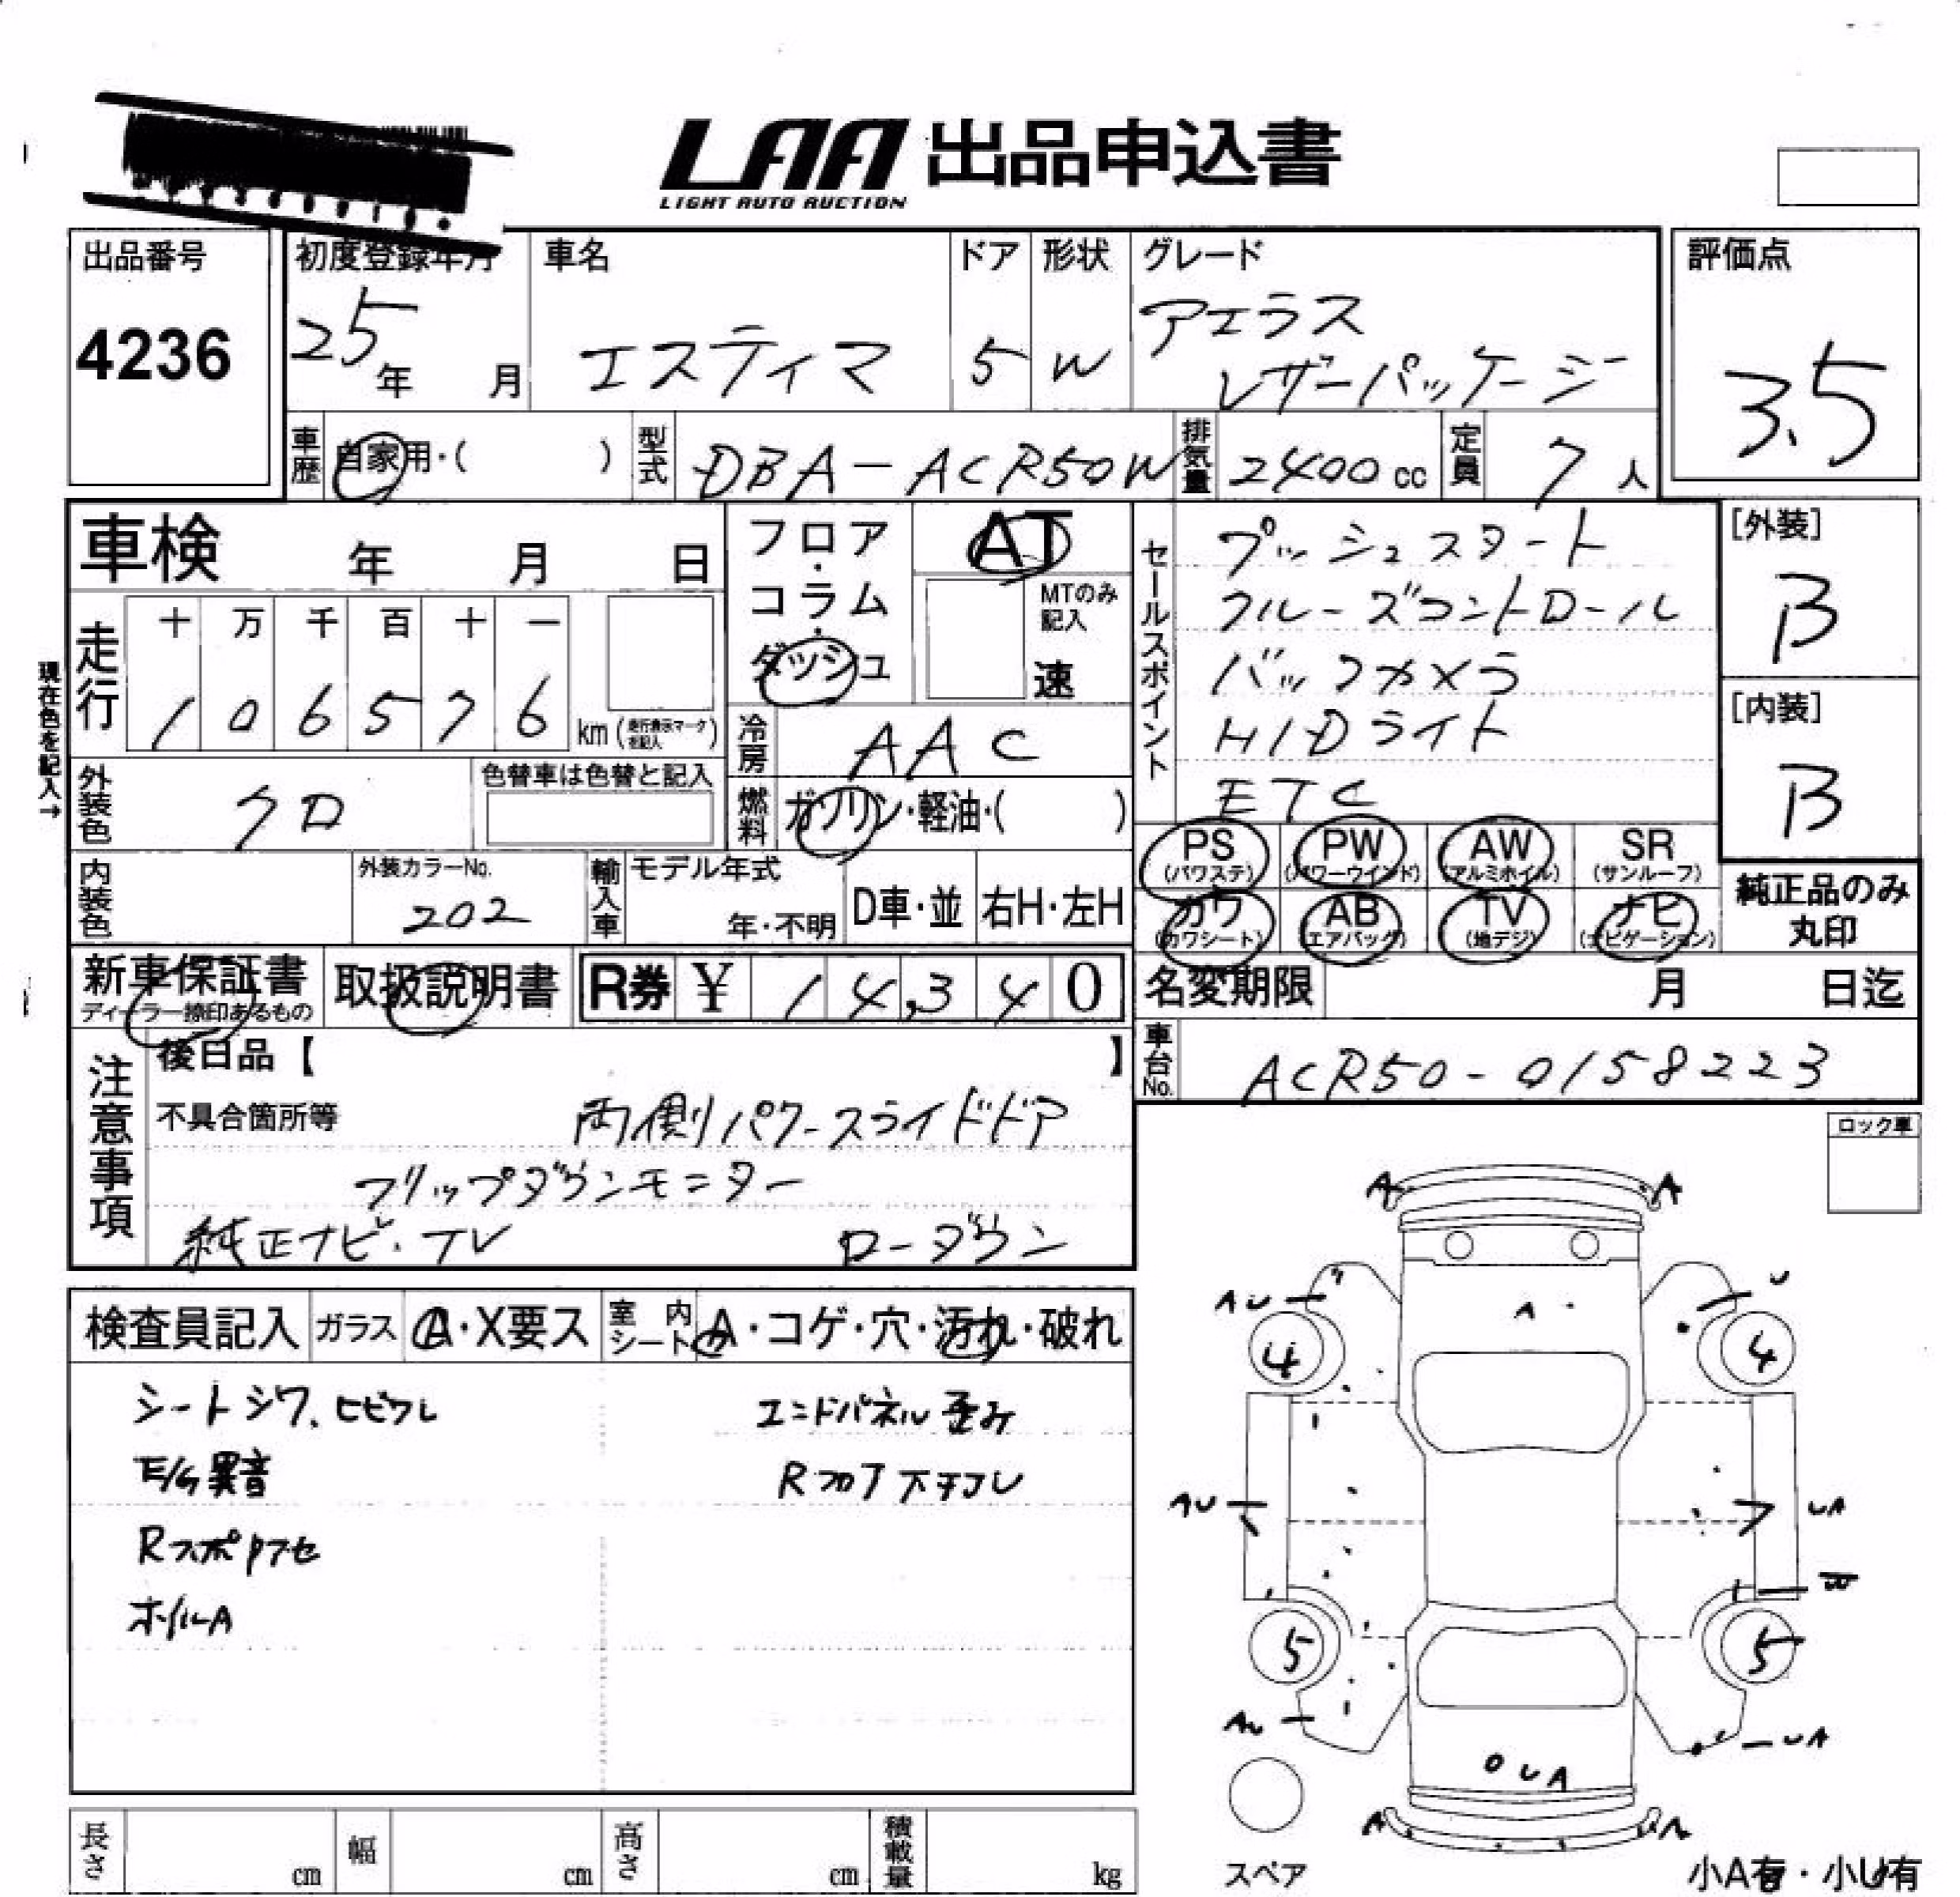 LAA 出品申込書
LIGHT AUTO AUCTION
出品番号
4236
初度登録年月
25年 月
車名
エスティマ
ドア
5
形状
W
グレード
アエラス
レザーパッケージ
評価点
3.5
車歴 自家用・( )
型式 DBA-ACR50W
排気量 2400 cc
定員 7 人
車検 年 月 日
フロア・コラム・ダッシュ
AT
MTのみ記入
速
セールスポイント
プッシュスタート
クルーズコントロール
バックカメラ
HIDライト
ETC
[外装]
B
[内装]
B
現在色を記入→
走行
十 万 千 百 十 一
1 0 6 5 7 6 km (走行表示マークを記入)
冷房 AAC
外装色 クロ
色替車は色替と記入
燃料 ガソリン・軽油・( )
PS (パワステ) PW (パワーウインド) AW (アルミホイル) SR (サンルーフ)
カワ (カワシート) AB (エアバッグ) TV (地デジ) ナビ (ナビゲーション)
純正品のみ
丸印
内装色
外装カラーNo.
202
輸入車 モデル年式
年・不明
D車・並
右H・左H
新車保証書
ディーラー捺印あるもの
取扱説明書
R券 ¥ 14,340
名変期限 月 日迄
車台No. ACR50-0158223
注意事項
後日品【 】
不具合箇所等 両側パワースライドドア
フリップダウンモニター
純正ナビ・TV ローダウン
ロック車
検査員記入 ガラス A・X要ス 室内シート A・コゲ・穴・汚れ・破れ
シートシワ、ヒビワレ
E/G異音
ホイルA
エンドパネル歪み
Rフロア下
A A
AU U
A
4 4
AU UA
W
5 5
AU UA
UA
A A
スペア
小A有・小U有
長さ cm 幅 cm 高さ cm 積載量 kg